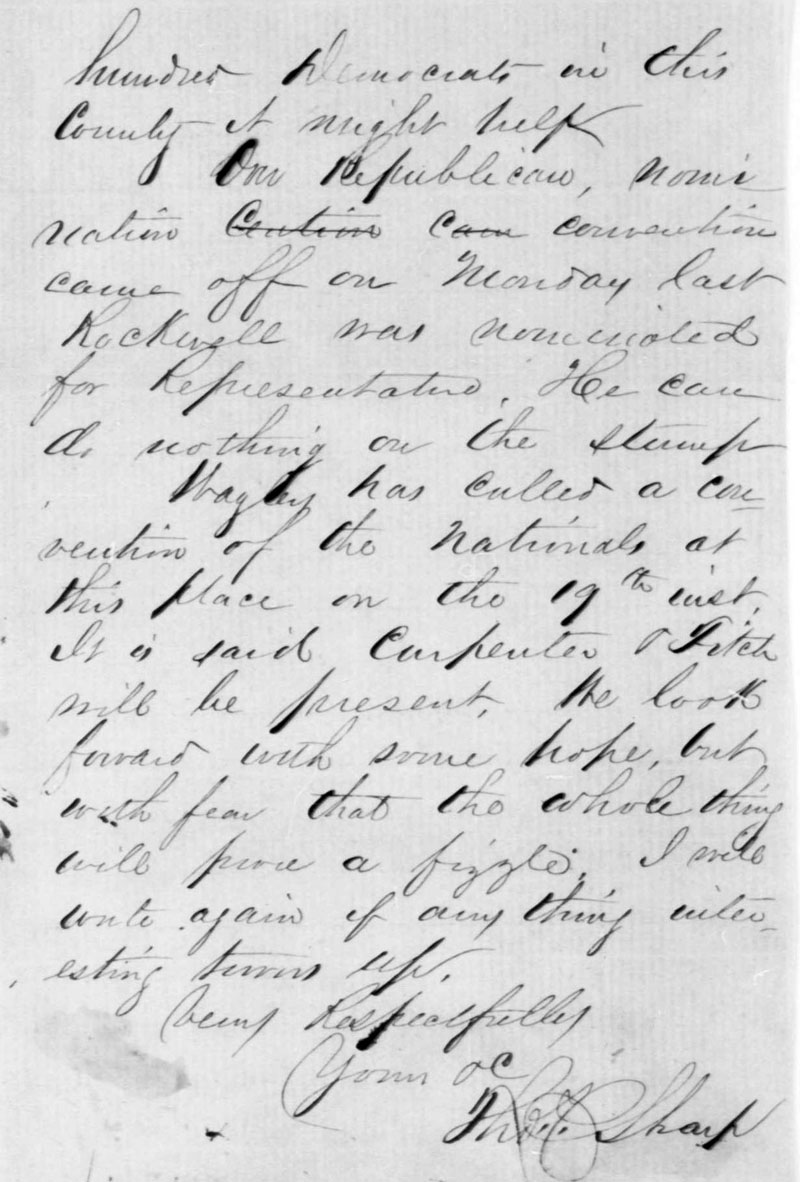 hundred Democrats in this
County it might help
Our Republican, nomi-
nation Cention cam convention
came off on Monday last
Rockwell was nominated
for Representative. He can
do nothing on the stump
has called a con-
vention of the Nationals at
this place on the 19th inst.
It is said Carpenter & Fitch
will be present. We look
forward with some hope, but
with fear that the whole thing
will prove a fizzle. I will
write again if any thing inter-
esting turns up.
Very Respectfully
Yours &C
Sharp